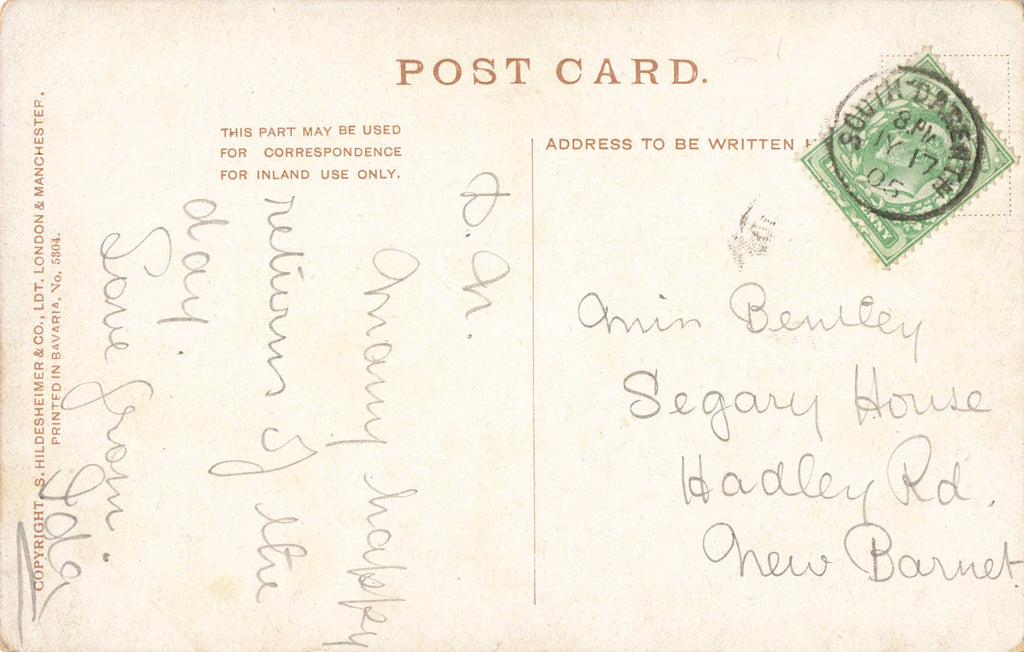 POST CARD.
THIS PART MAY BE USED
FOR CORRESPONDENCE
FOR INLAND USE ONLY.
ADDRESS TO BE WRITTEN
SOUTH
8.PM
17
05
PENNY
D. N.
Many happy
returns of the
day.
Love from
Ida
Miss Bentley
Segary House
Hadley Rd.
New Barnet
COPYRIGHT S. HILDESHEIMER & CO., LDT. LONDON & MANCHESTER.
PRINTED IN BAVARIA, No. 5304.